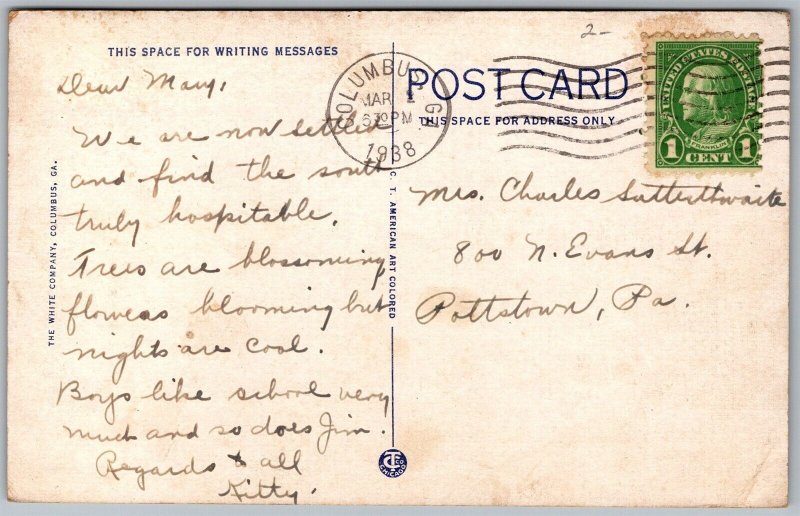 2-
THIS SPACE FOR WRITING MESSAGES
Dear Mary,
We are now settled
and find the south
truly hospitable.
Trees are blossoming
flowers blooming but
nights are cool.
Boys like school very
much and so does Jim.
Regards to all
Kitty.
THE WHITE COMPANY, COLUMBUS, GA.
C. T. AMERICAN ART COLORED
CTCO
CHICAGO
COLUMBUS, GA.
MAR
630PM
1938
POST CARD
THIS SPACE FOR ADDRESS ONLY
UNITED STATES POSTAGE
FRANKLIN
1 CENT 1
Mrs. Charles Satterthwaite
800 N. Evans St.
Pottstown, Pa.